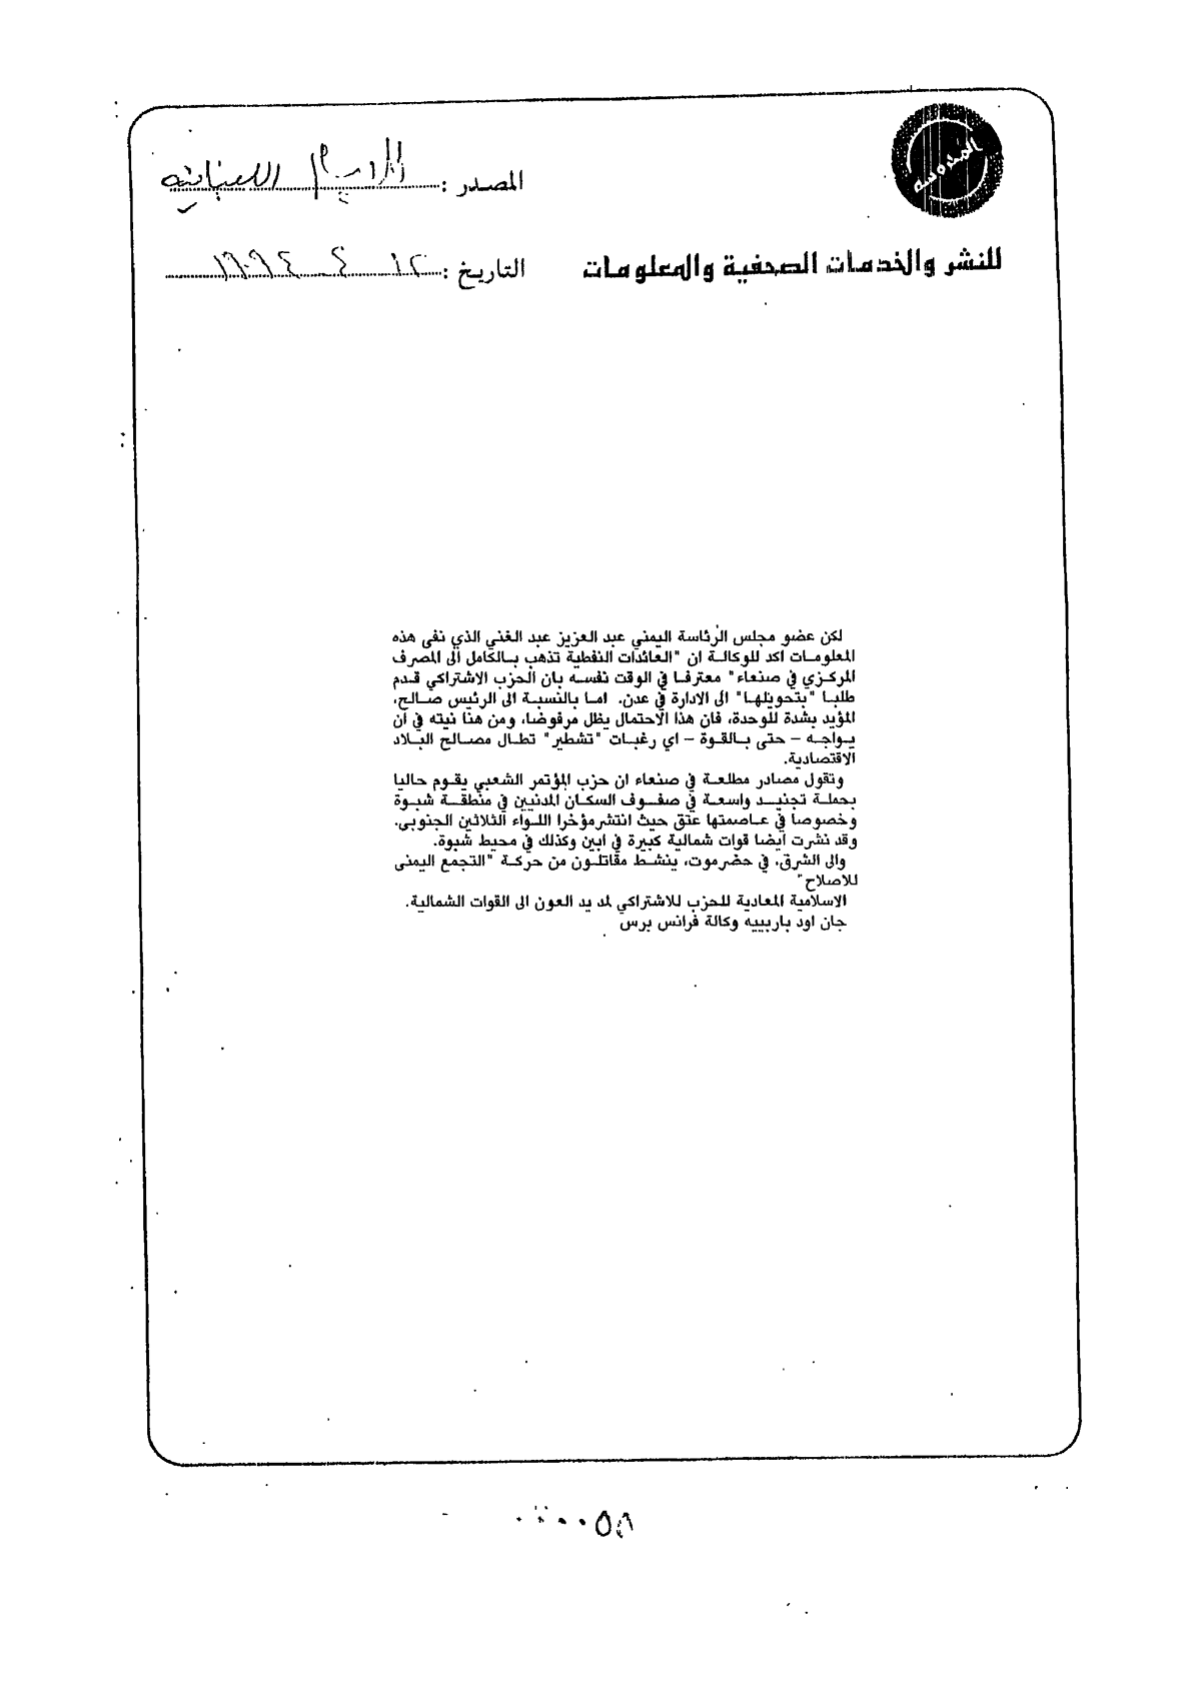 المصدر : اللبنانية
للنشر والخدمات الصحفية والمعلومات
التاريخ : ١٢ ٤
لكن عضو مجلس الرئاسة اليمني عبد العزيز عبد الغني الذي نفى هذه
المعلومات اكد للوكالة ان "العائدات النفطية تذهب بالكامل الى المصرف
المركزي في صنعاء" معترفا في الوقت نفسه بان الحزب الاشتراكي قدم
طلبا "بتحويلها" الى الادارة في عدن. اما بالنسبة الى الرئيس صالح،
المؤيد بشدة للوحدة، فان هذا الاحتمال يظل مرفوضا، ومن هنا نيته في أن
يواجه – حتى بالقوة – اي رغبات "تشطير" تطال مصالح البلاد
الاقتصادية.
وتقول مصادر مطلعة في صنعاء ان حزب المؤتمر الشعبي يقوم حاليا
بحملة تجنيد واسعة في صفوف السكان المدنيين في منطقة شبوة
وخصوصا في عاصمتها عتق حيث انتشر مؤخرا اللواء الثلاثين الجنوبي.
وقد نشرت ايضا قوات شمالية كبيرة في ابين وكذلك في محيط شبوة.
والى الشرق، في حضرموت، ينشط مقاتلون من حركة "التجمع اليمنى
للاصلاح"
الاسلامية المعادية للحزب للاشتراكي لمد يد العون الى القوات الشمالية.
جان اود باربييه وكالة فرانس برس